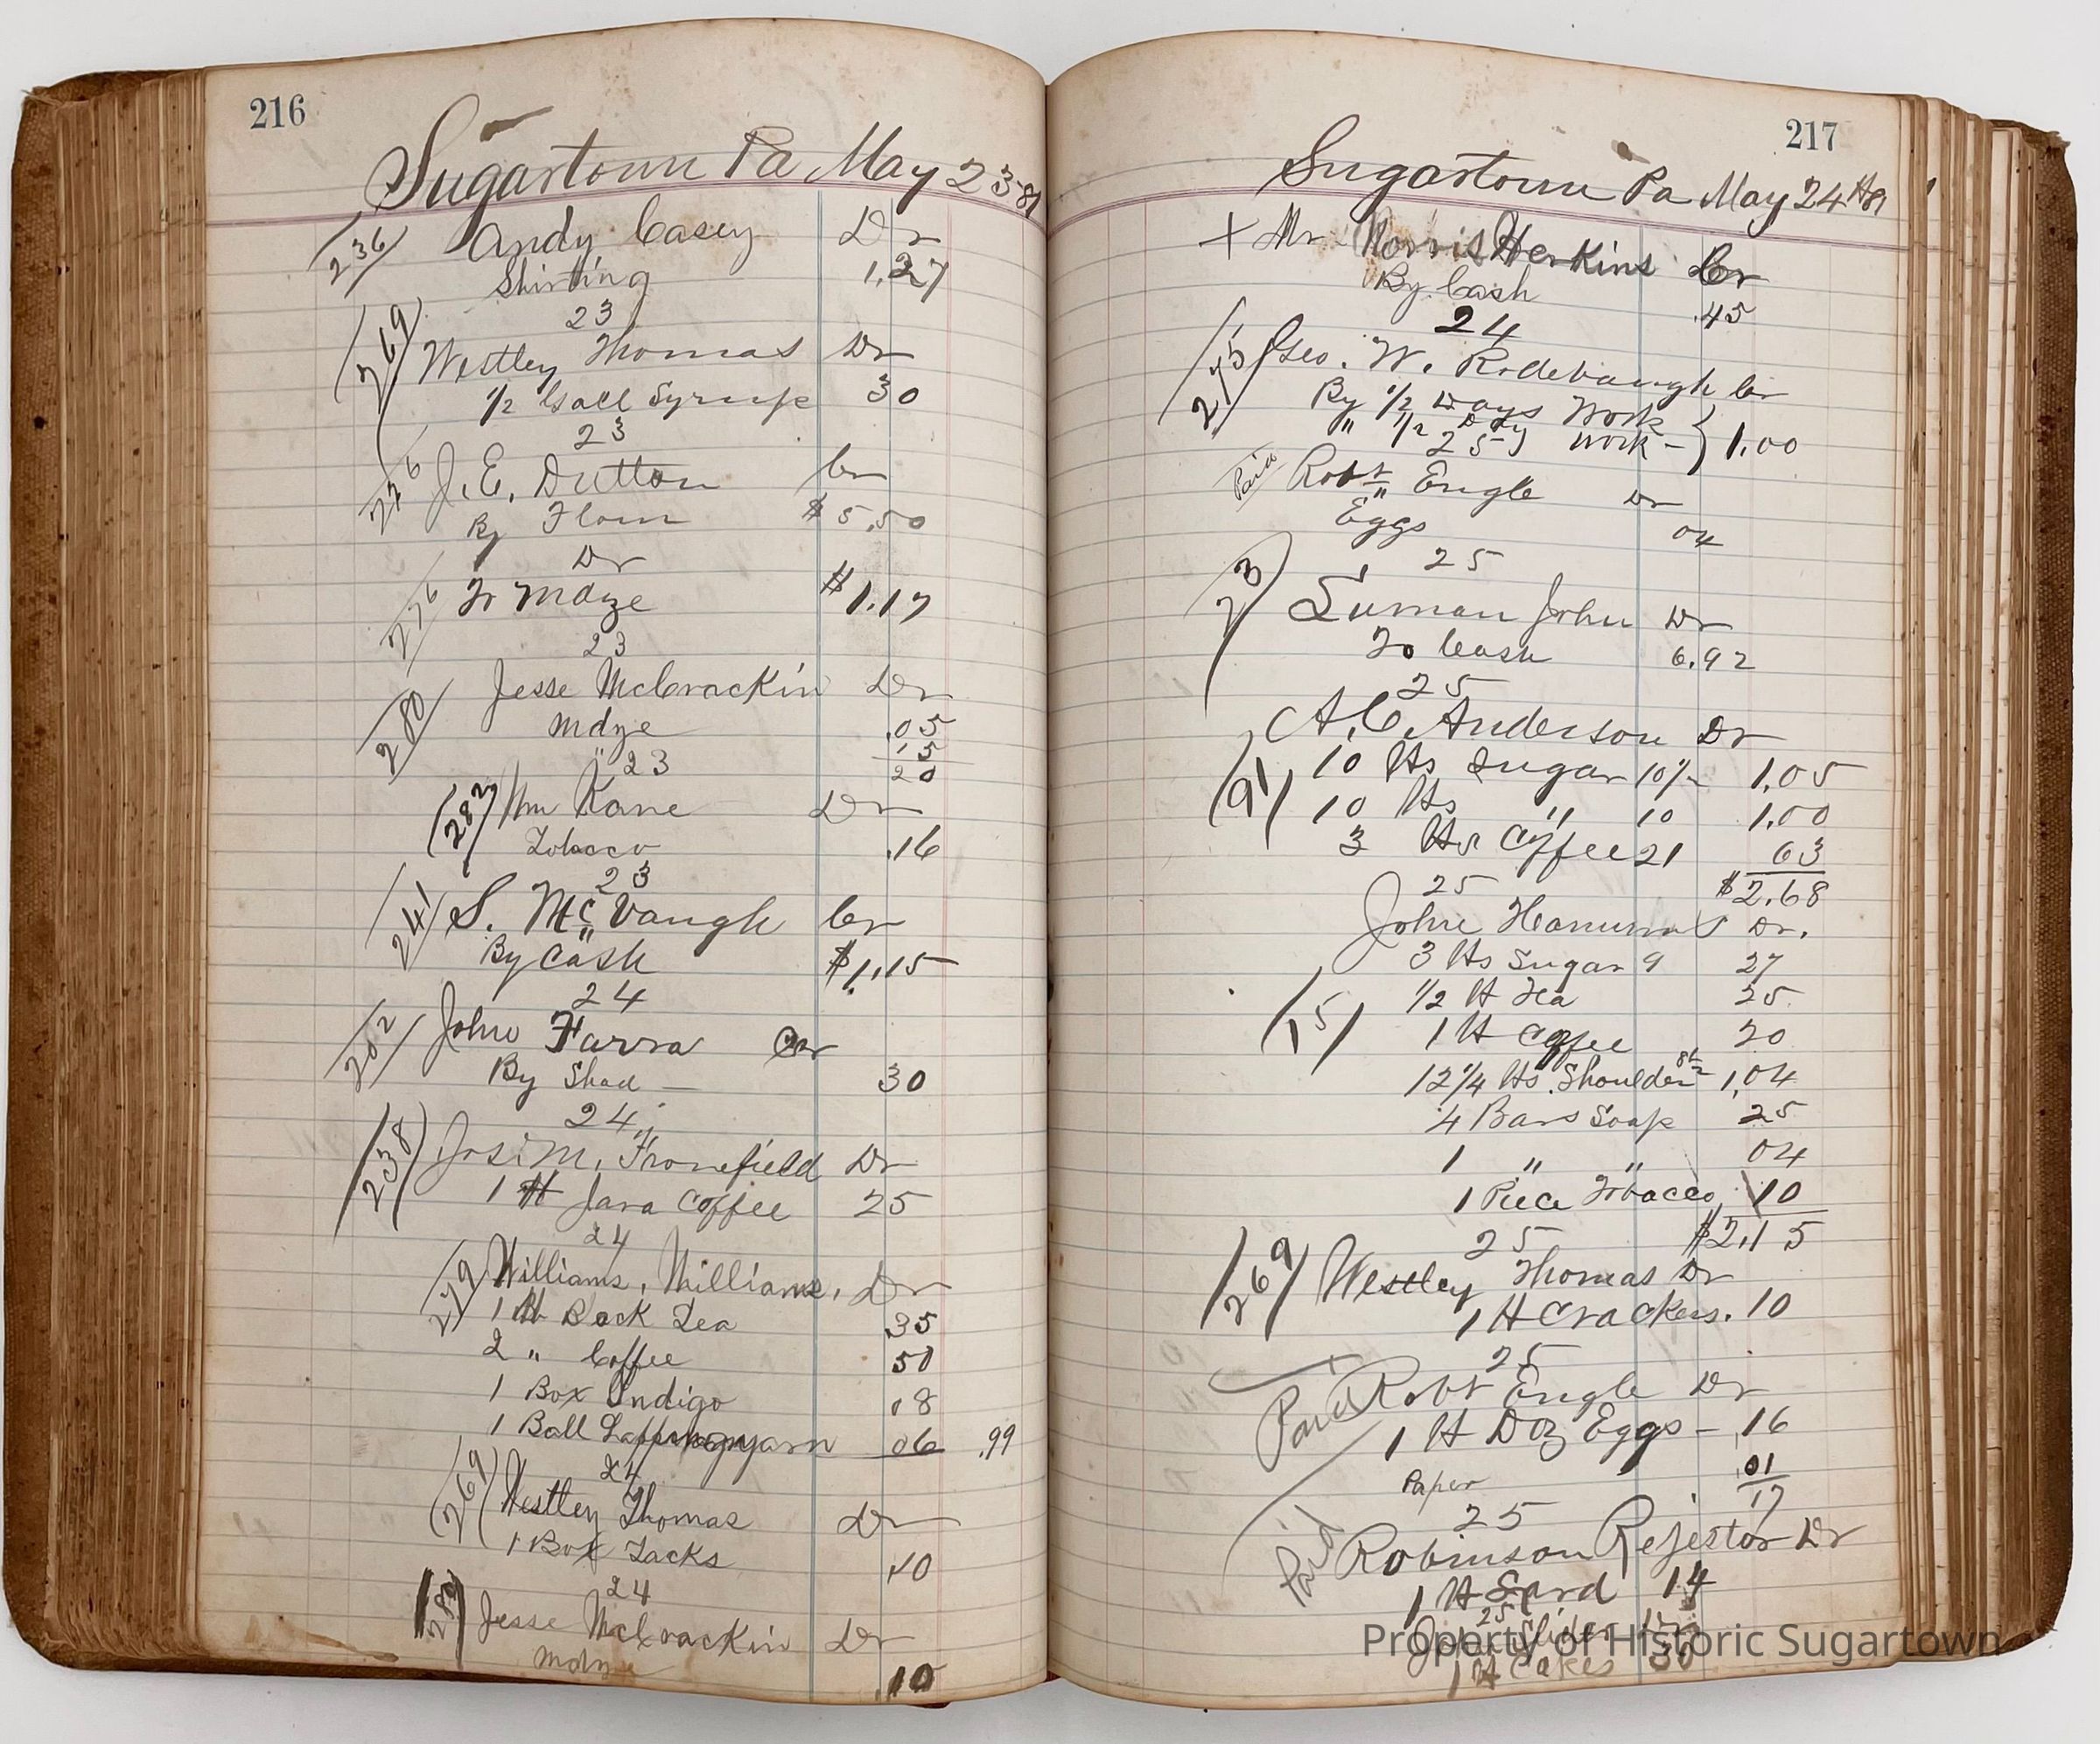 216
Sugartown Pa May 23-89
236 Andy Casey Dr
Shirting 1.27
23
269 Westley Thomas Dr
1/2 Gall Syrup 30
23
276 J. E. Dutton Cr
By Flour $5.50
Dr
276 To Mdze $1.17
23
280 Jesse McCrackin Dr
Mdze .05
.15
" 23 20
282 Wm Kane Dr
Tobacco .16
23
241 S. McVaugh Cr
By Cash $1.15
24
202 John Farra Cr
By Shad — 30
24
238 Jos. M. Fronefield Dr
1 lb Java Coffee 25
24
279 Williams, Williams, Dr
1 lb Tea .35
2 " Coffee 50
1 Box Indigo 18
1 Ball yarn 06 .99
24
269 Westley Thomas Dr
1 Box Tacks .10
24
280 Jesse McCrackin Dr
Mdze .10
217
Sugartown Pa May 24th 89
+ Mr. Norris Herkins Cr
By Cash .45
24
275 Geo. W. Rodebaugh Cr
By 1/2 Days Work
" 1/2 Day Work — } 1.00
25
Paid Robt Engle Dr
Eggs 04
25
23 Suman John Dr
To Cash 6.92
25
A. C. Anderson Dr
91 10 lbs Sugar 10½ 1.05
10 lbs " 10 1.00
3 lbs Coffee 21 63
25 $2.68
John Hanums Dr.
3 lbs Sugar 9 27
15 1/2 lb Tea 25
1 lb Coffee 20
12 1/4 lbs Shoulder 8½ 1,04
4 Bars Soap 25
1 " " 04
1 Piece Tobacco 10
25 $2.15
269 Westley Thomas Dr
1 lb Crackers .10
25
Paid Robt Engle Dr
1 Doz Eggs — 16
Paper .01
17
25
Paid Robinson Rejestor Dr
1 lb Lard 14
25
John Dr
1 lb Cakes 30
Property of Historic Sugartown